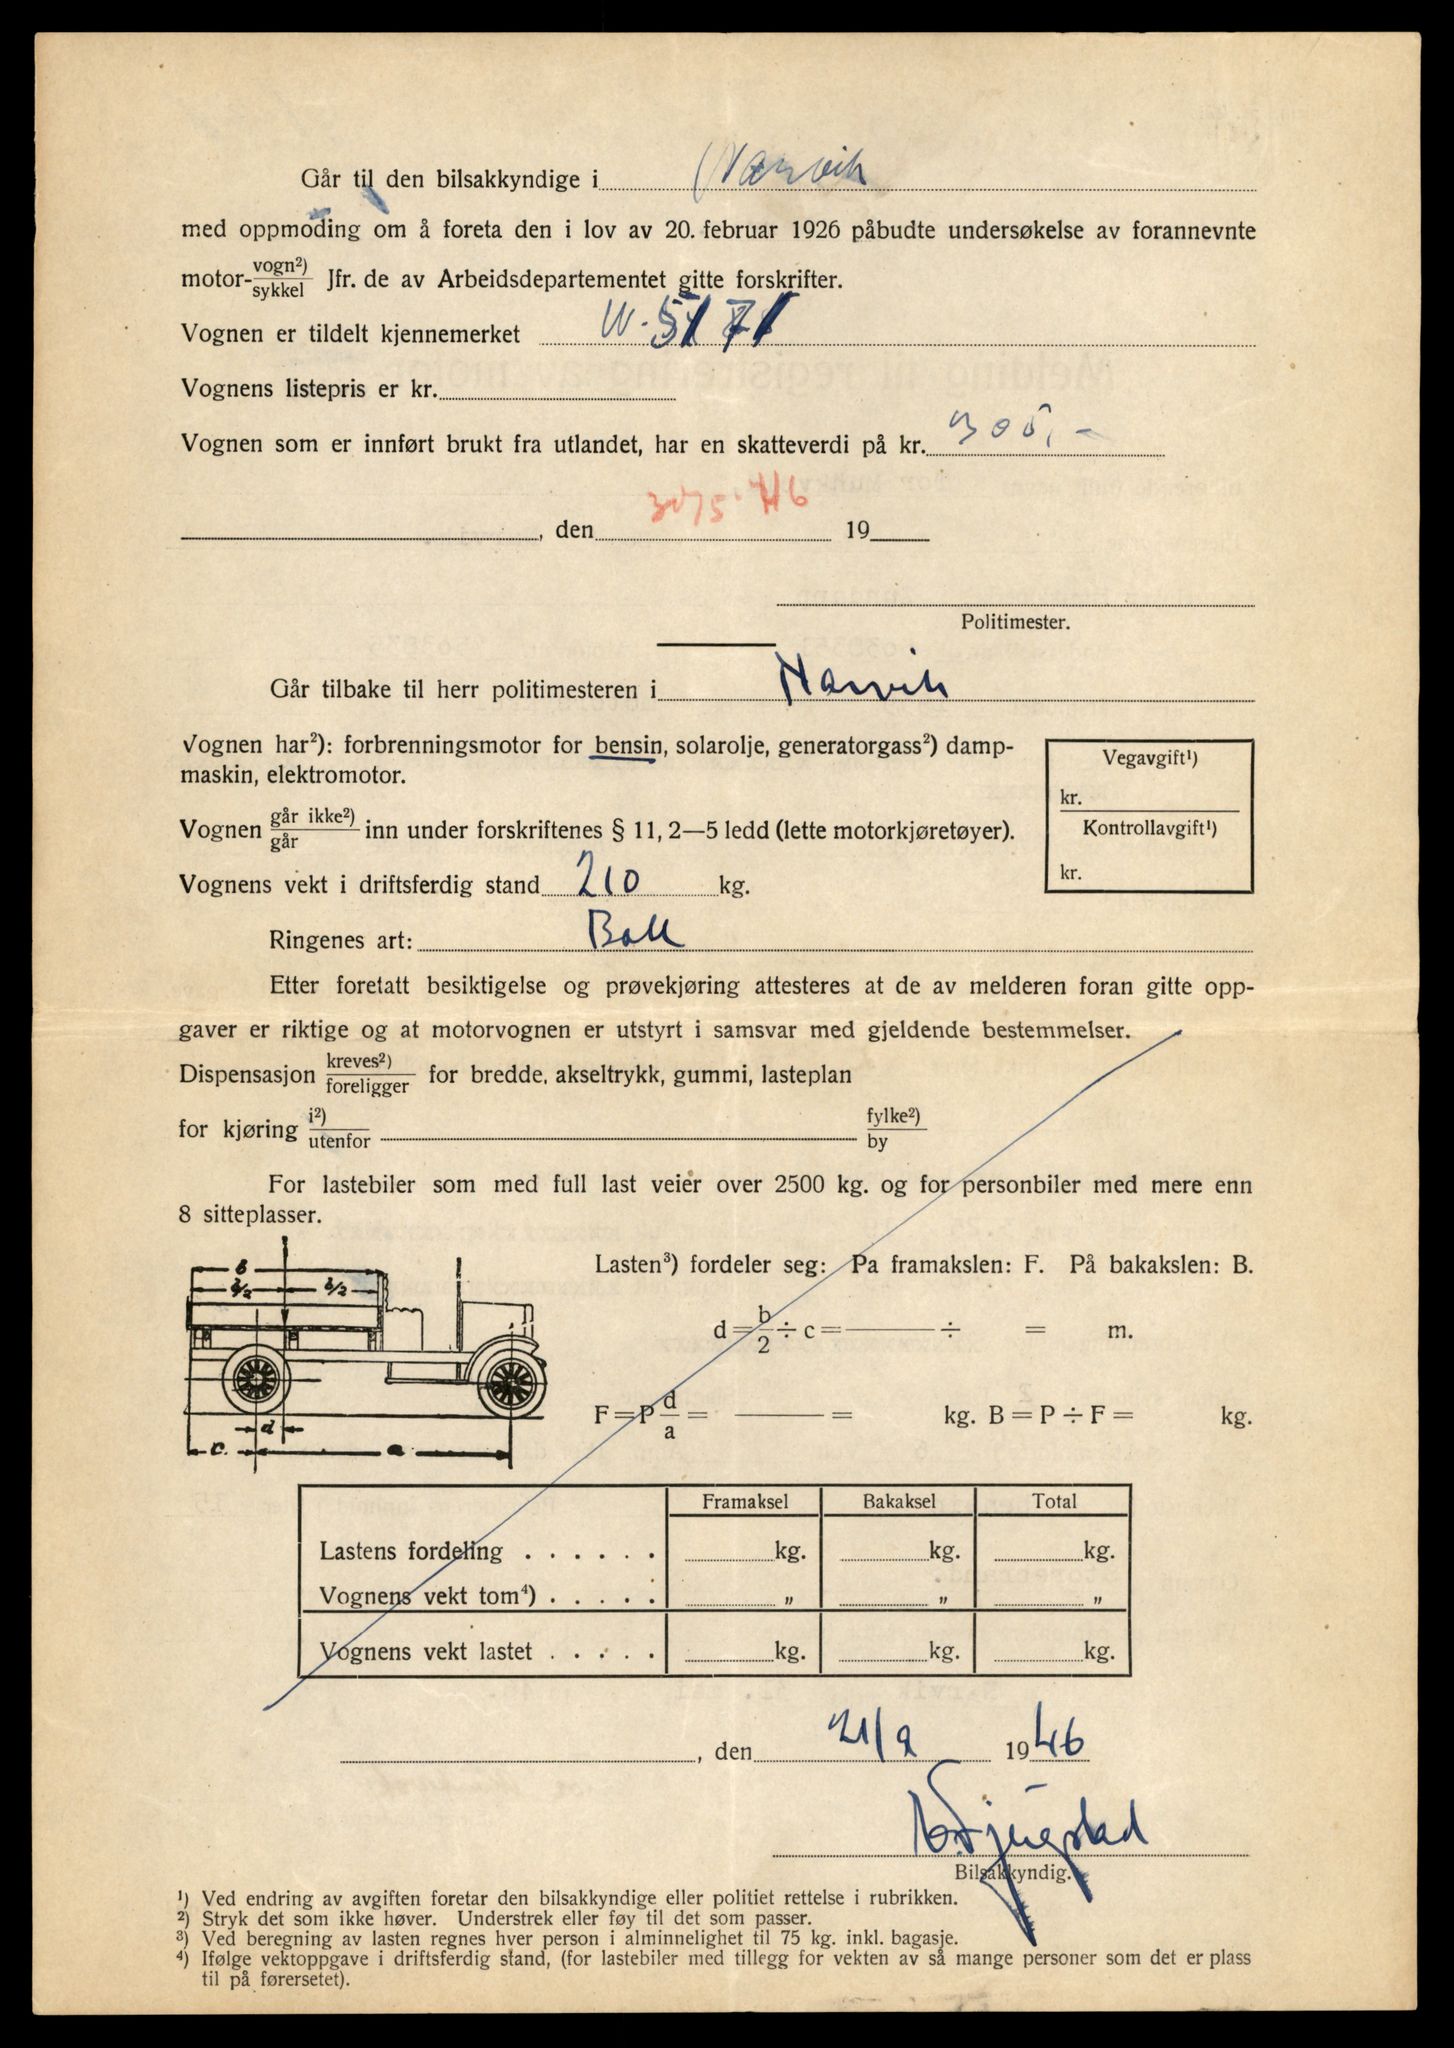 Går til den bilsakkyndige i Narvik
med oppmoding om å foreta den i lov av 20. februar 1926 påbudte undersøkelse av forannevnte
motor- vogn²) / sykkel Jfr. de av Arbeidsdepartementet gitte forskrifter.
Vognen er tildelt kjennemerket W-5171
Vognens listepris er kr.
Vognen som er innført brukt fra utlandet, har en skatteverdi på kr. 300,-
, den 19
Politimester.
Går tilbake til herr politimesteren i Narvik
Vognen har²): forbrenningsmotor for bensin, solarolje, generatorgass²) damp-
maskin, elektromotor.
Vegavgift¹)
kr.
Kontrollavgift¹)
kr.
Vognen går ikke²) / går inn under forskriftenes § 11, 2—5 ledd (lette motorkjøretøyer).
Vognens vekt i driftsferdig stand 210 kg.
Ringenes art: Ball
Etter foretatt besiktigelse og prøvekjøring attesteres at de av melderen foran gitte opp-
gaver er riktige og at motorvognen er utstyrt i samsvar med gjeldende bestemmelser.
Dispensasjon kreves²) / foreligger for bredde, akseltrykk, gummi, lasteplan
for kjøring i²) / utenfor fylke²) / by
For lastebiler som med full last veier over 2500 kg. og for personbiler med mere enn
8 sitteplasser.
Lasten³) fordeler seg: Pa framakslen: F. På bakakslen: B.
b
b/2 b/2
d = b/2 ÷ c = —— ÷ = m.
F = P d/a = —— = kg. B = P ÷ F = kg.
d
c. a
Framaksel Bakaksel Total
Lastens fordeling . . . . . . kg. kg. kg.
Vognens vekt tom⁴) . . . . . „ „ „
Vognens vekt lastet . . . . . kg. kg. kg.
, den 21/9 1946
Bilsakkyndig.
¹) Ved endring av avgiften foretar den bilsakkyndige eller politiet rettelse i rubrikken.
²) Stryk det som ikke høver. Understrek eller føy til det som passer.
³) Ved beregning av lasten regnes hver person i alminnelighet til 75 kg. inkl. bagasje.
⁴) Ifølge vektoppgave i driftsferdig stand, (for lastebiler med tillegg for vekten av så mange personer som det er plass
til på førersetet).